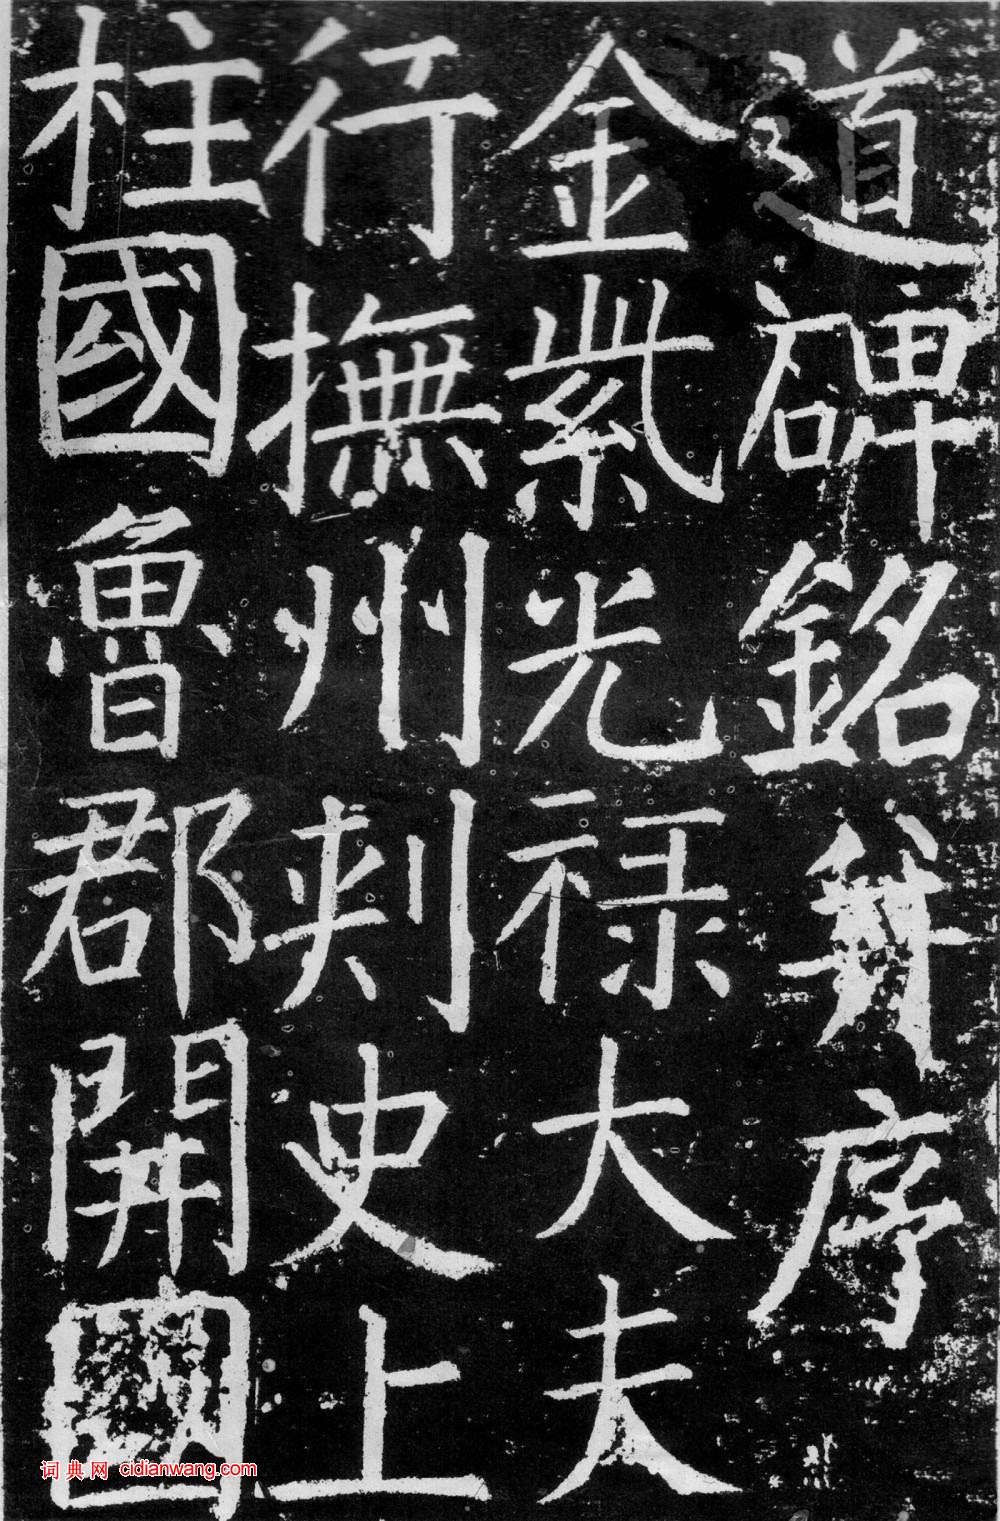 道碑銘并序
金紫光禄大夫
行撫州刾史上
柱國魯郡開國
词典网 cidianwang.com